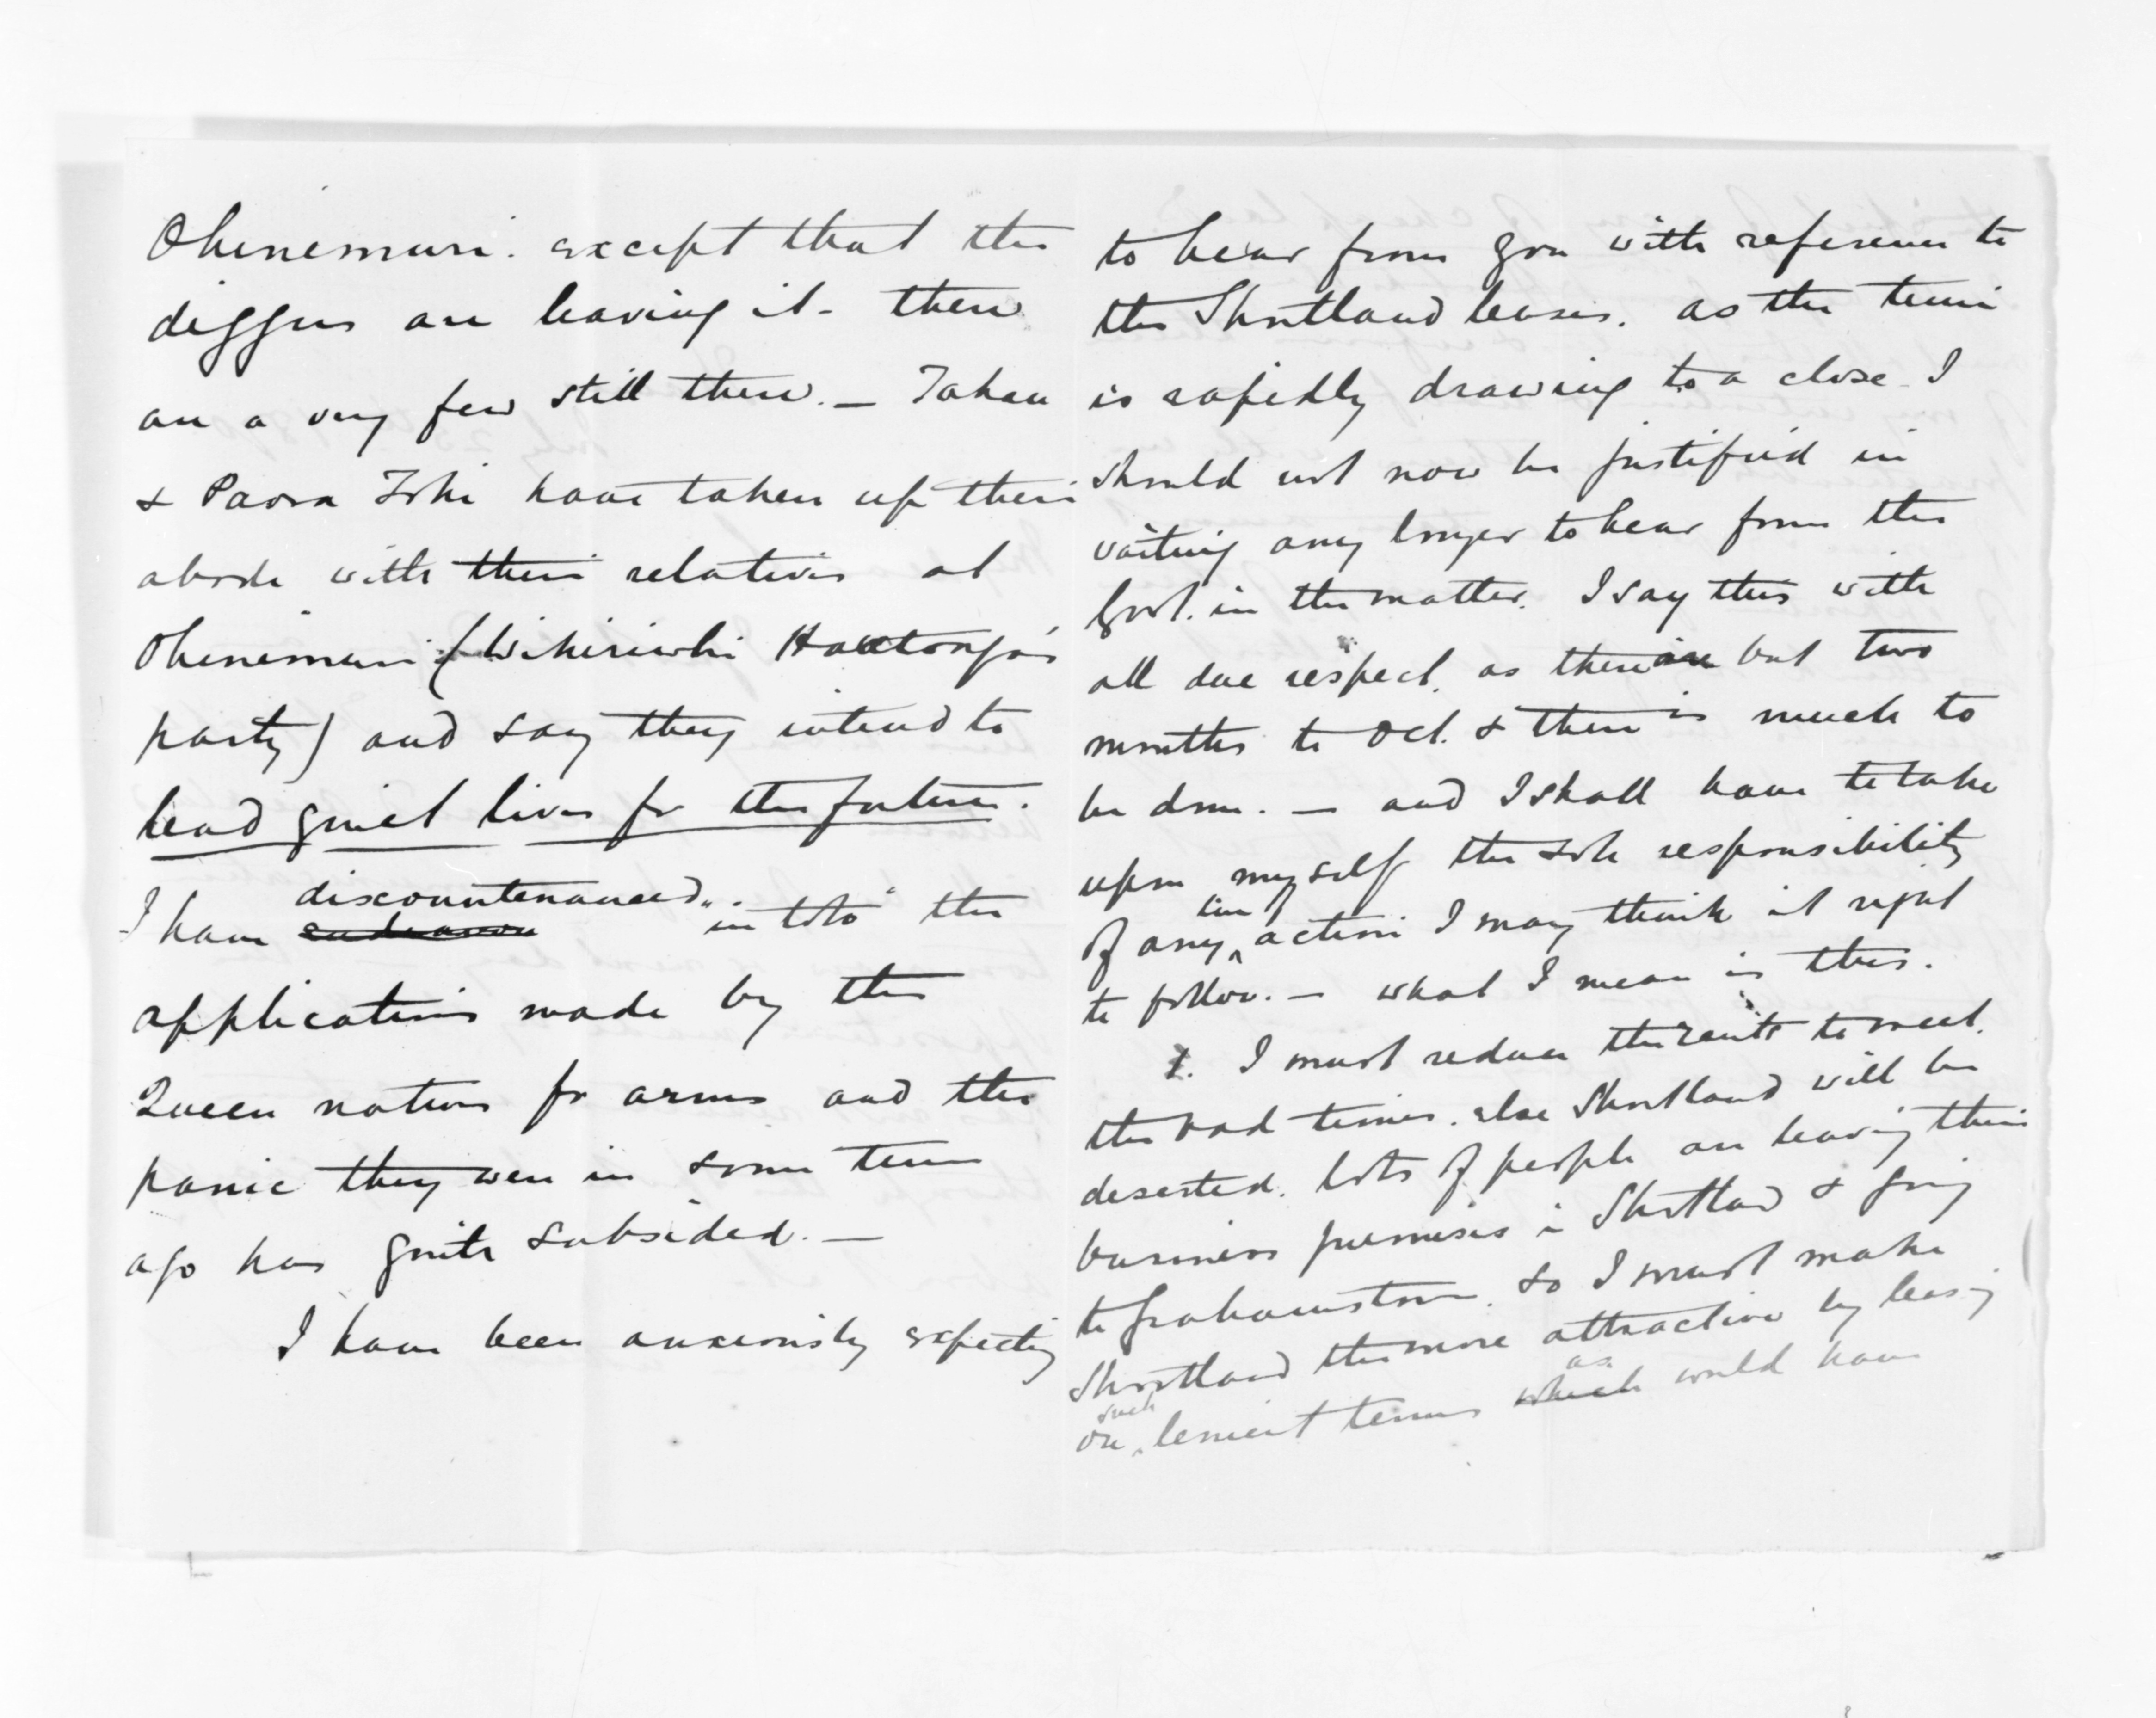 Ohinemuri. except that the
diggers are leaving it. there
are a very few still there. — Taken
& Paora Tohi have taken up their
abode with their relatives at
Ohinemuri (Wikiriwhi Hautonga's
party) and say they intend to
lead quiet lives for the future.
I have discountenanced "in toto" the
applications made by the
Queen natives for arms and the
panic they were in some time
ago has quite subsided. —
I have been anxiously expecting
to hear from you with reference to
the Shortland leases. as the time
is rapidly drawing to a close I
should not now be justified in
waiting any longer to hear from the
Govt. in the matter. I say this with
all due respect. as there are but two
months to Oct. & there is much to
be done. — and I shall have to take
upon myself the sole responsibility
of any line action I may think it right
to follow. — what I mean is this.
1. I must reduce the rents to meet
the bad times. else Shortland will be
deserted. lots of people are leaving their
business premises in Shortland & going
to Grahamstown. so I must make
Shortland the more attractive by leasing
on such lenient terms which as would have